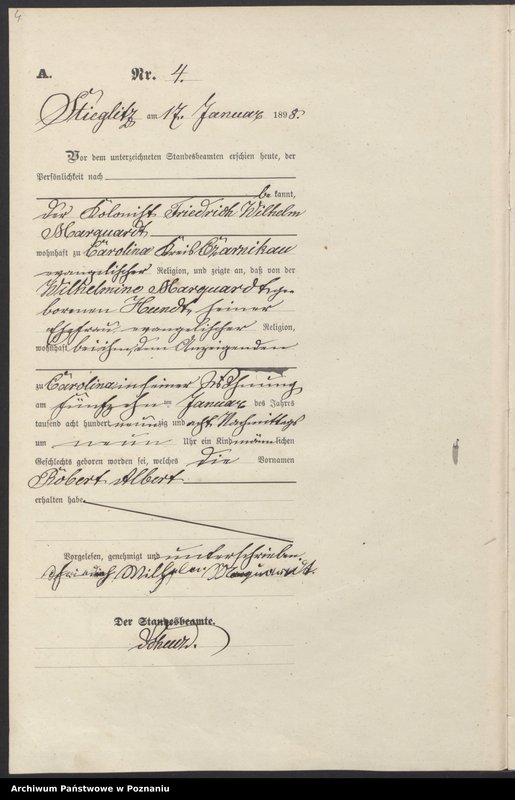 4
A. Nr. 4.
Stieglitz am 17. Januar 1898.
Vor dem unterzeichneten Standesbeamten erschien heute, der
Persönlichkeit nach
be kannt,
der Kolonist Friedrich Wilhelm
Marquardt
wohnhaft zu Carolina Kreis Czarnikau
evangelischer Religion, und zeigte an, daß von der
Wilhelmine Marquardt ge-
borenen Hundt, seiner
Ehefrau, evangelischer Religion,
wohnhaft bei ihm, dem Anzeigenden
zu Carolina in seiner Wohnung
am fünfzehn ten Januar des Jahres
tausend acht hundert neunzig und acht Nachmittags
um neun Uhr ein Kind männlichen
Geschlechts geboren worden sei, welches die Vornamen
Robert Albert
erhalten habe.
Vorgelesen, genehmigt und unterschrieben.
Friedrich Wilhelm Marquardt.
Der Standesbeamte.
Archiwum Państwowe w Poznaniu